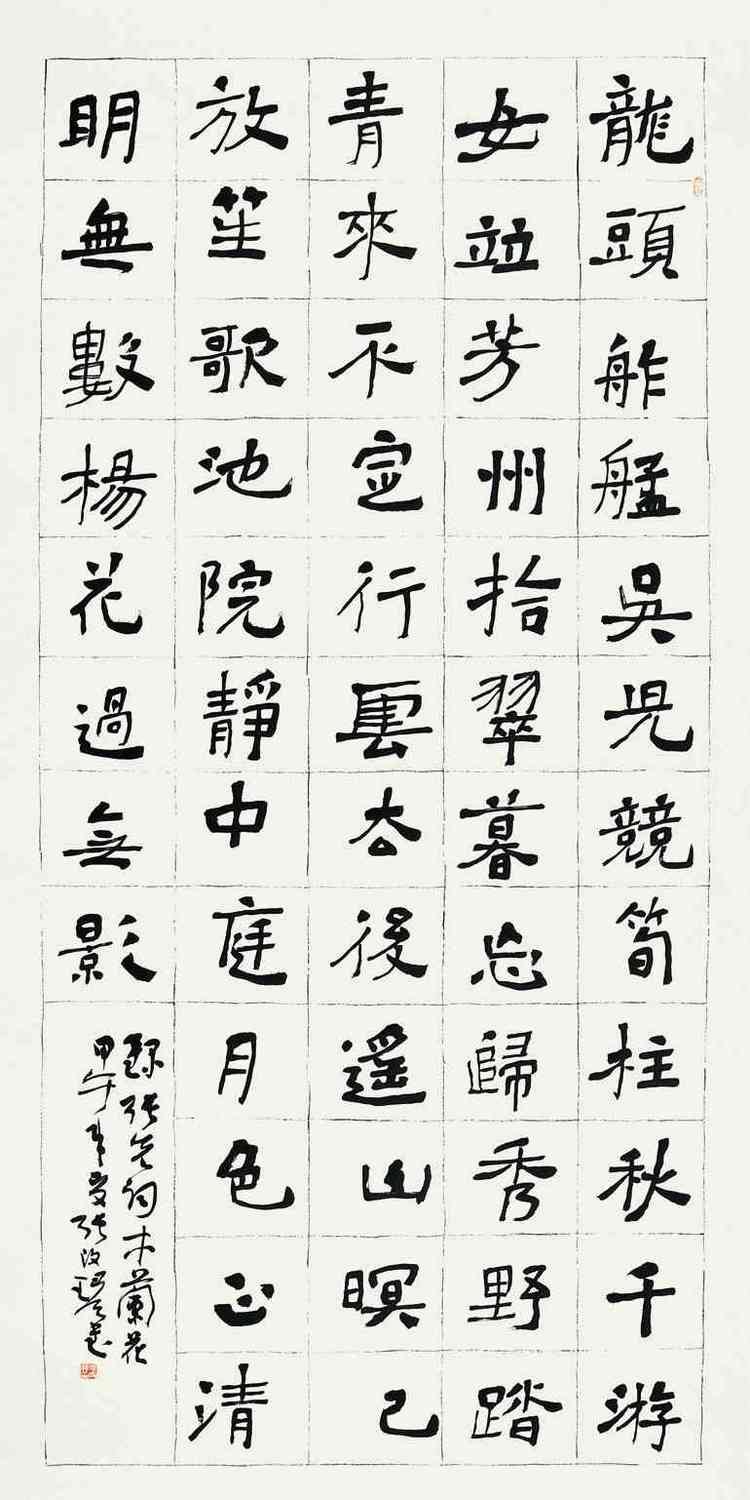 龍頭舴艋吳兒競筍柱秋千游
女並芳州拾翠暮忘歸秀野踏
青來不定行雲去後遙山暝已
放笙歌池院靜中庭月色正清
明無數楊花過無影
錄張先詞木蘭花
甲午年夏張改琴書